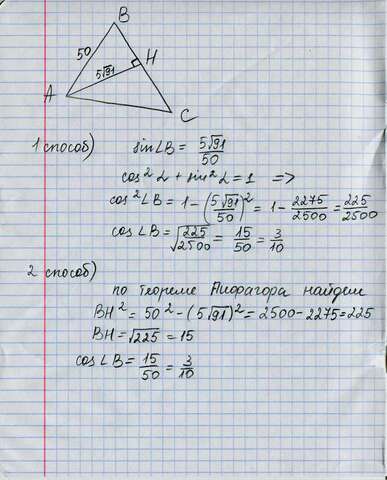 B
50
5√91
H
A
C
1 способ)
sin∠B = 5√91/50
cos²α + sin²α = 1 =>
cos²∠B = 1 - (5√91/50)² = 1 - 2275/2500 = 225/2500
cos∠B = √225/2500 = 15/50 = 3/10
2 способ)
по теореме Пифагора найдем
BH² = 50² - (5√91)² = 2500 - 2275 = 225
BH = √225 = 15
cos∠B = 15/50 = 3/10